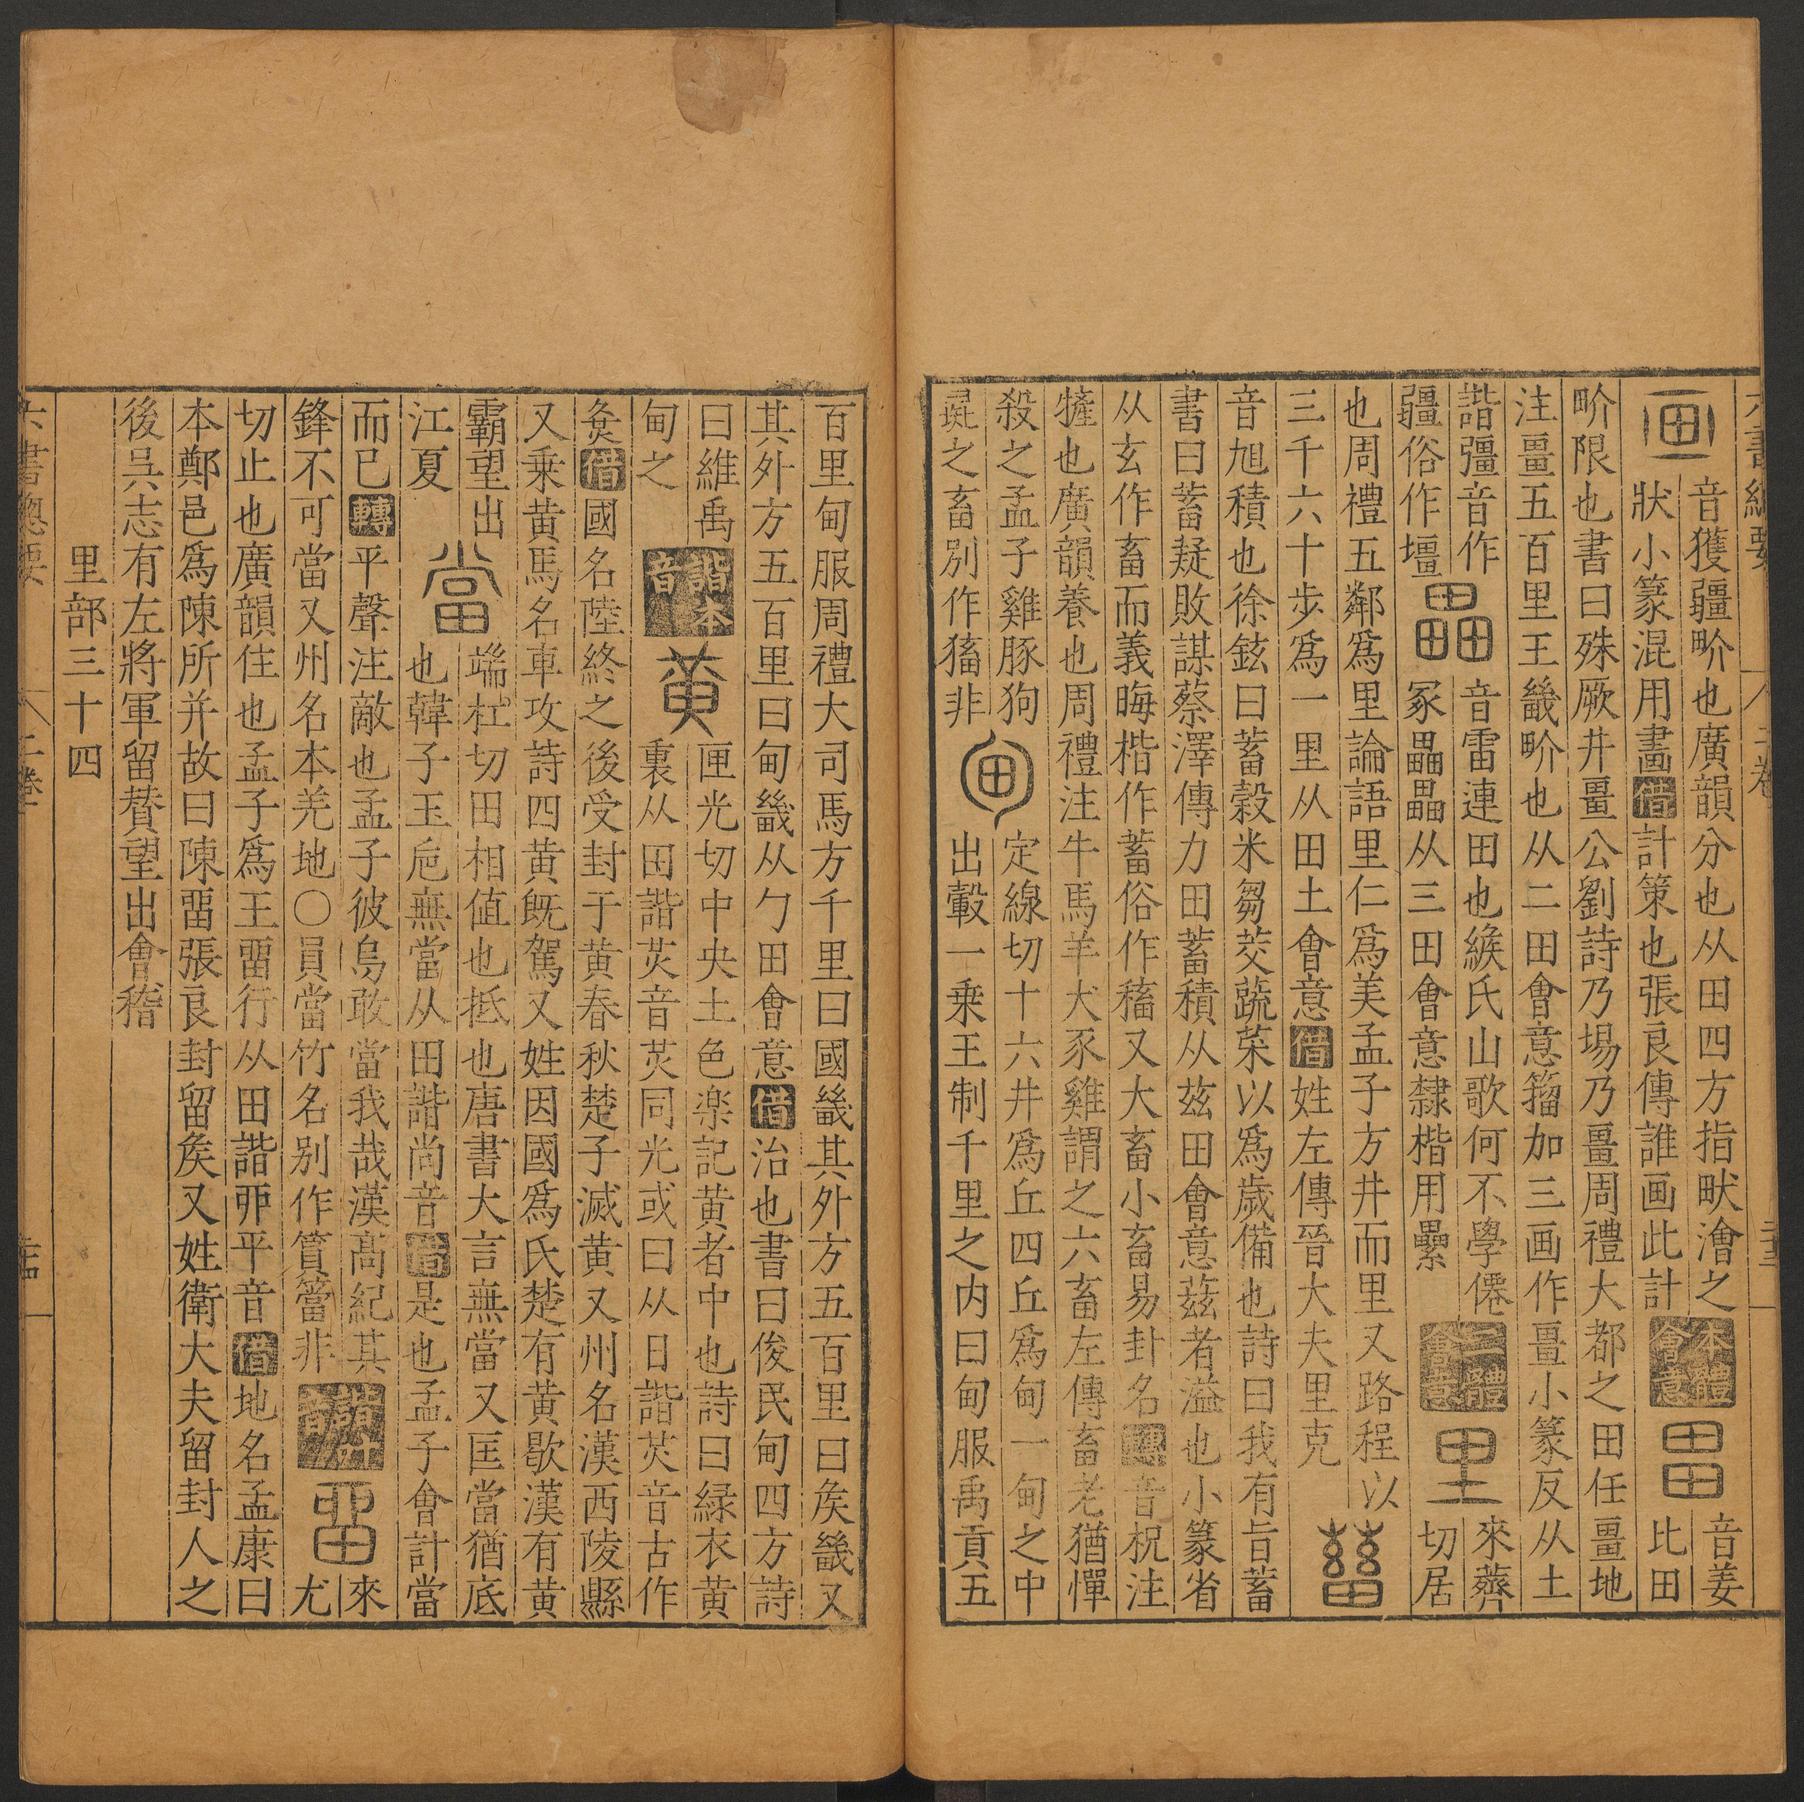 六書總要 二卷
音獲疆畍也廣韻分也从田四方指畎澮之 本體 音姜
画 狀小篆混用畫借計策也張良傳誰画此計 會意 畕 比田
畍限也書曰殊厥井畺公劉詩乃埸乃畺周禮大都之田任畺地
注畺五百里王畿畍也从二田會意籀加三画作畺小篆反从土
諧彊音作 畾 音雷連田也緱氏山歌何不學僊 三體 里 來薺
疆俗作壃 冢畾畾从三田會意隸楷用纍 會意 切居
也周禮五鄰爲里論語里仁爲美孟子方井而里又路程以
三千六十步爲一里从田土會意借姓左傳晉大夫里克
音旭積也徐鉉曰蓄穀米芻茭蔬菜以爲歲備也詩曰我有旨蓄
書曰蓄疑敗謀蔡澤傳力田蓄積从茲田會意茲者溢也小篆省
从玄作畜而義晦楷作蓄俗作稸又大畜小畜易卦名轉音祝注
也廣韻養也周禮注牛馬羊犬豕雞謂之六畜左傳畜老猶憚
殺之孟子雞豚狗 甸 定線切十六井爲丘四丘爲甸一甸之中
彘之畜別作非 出轂一乘王制千里之内曰甸服禹貢五
百里甸服周禮大司馬方千里曰國畿其外方五百里曰矦畿又
其外方五百里曰甸畿从勹田會意借治也書曰俊民甸四方詩
曰維禹 諧本 黃 匣光切中央土色楽記黄者中也詩曰緑衣黄
甸之 音 裏从田諧炗音炗同光或曰从日諧炗音古作
借國名陸終之後受封于黄春秋楚子滅黄又州名漢西陵縣
又乗黄馬名車攻詩四黄既駕又姓因國爲氏楚有黄歇漢有黄
霸望出 當 端杜切田相值也抵也唐書大言無當又匡當猶底
江夏 也韓子玉巵無當从田諧尚音借是也孟子會計當
而已轉平聲注敵也孟子彼烏敢當我哉漢髙紀其 音 畱 來
鋒不可當又州名本羌地〇員當竹名別作篔簹非 尤
切止也廣韻住也孟子爲王畱行从田諧丣平音借地名孟康曰
本鄭邑爲陳所并故曰陳畱張良封留矦又姓衛大夫留封人之
後吳志有左將軍留賛望出會稽
里部三十四
六書總要 二卷